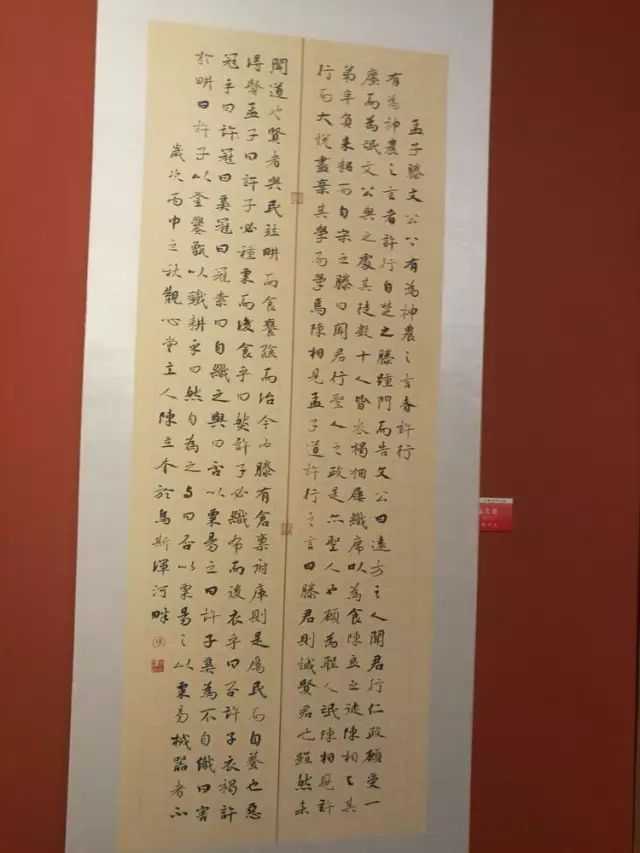 孟子滕文公上有為神農之言者許行
有為神農之言者許行自楚之滕踵門而告文公曰遠方之人聞君行仁政願受一
廛而為氓文公與之處其徒數十人皆衣褐捆屨織席以為食陳良之徒陳相與其
弟辛負耒耜而自宋之滕曰聞君行聖人之政是亦聖人也願為聖人氓陳相見許
行而大悅盡棄其學而學焉陳相見孟子道許行之言曰滕君則誠賢君也雖然未
聞道也賢者與民並耕而食饔飧而治今也滕有倉廩府庫則是厲民而自養也惡
得賢孟子曰許子必種粟而後食乎曰然許子必織布而後衣乎曰否許子衣褐許
冠乎曰許冠曰奚冠曰冠素曰自織之與曰否以粟易之曰許子奚為不自織曰害
於耕曰許子以釜爨甑以鐵耕乎曰然自為之與曰否以粟易之以粟易械器者不
歲次丙申之秋觀心堂主人陳立本於烏斯渾河畔